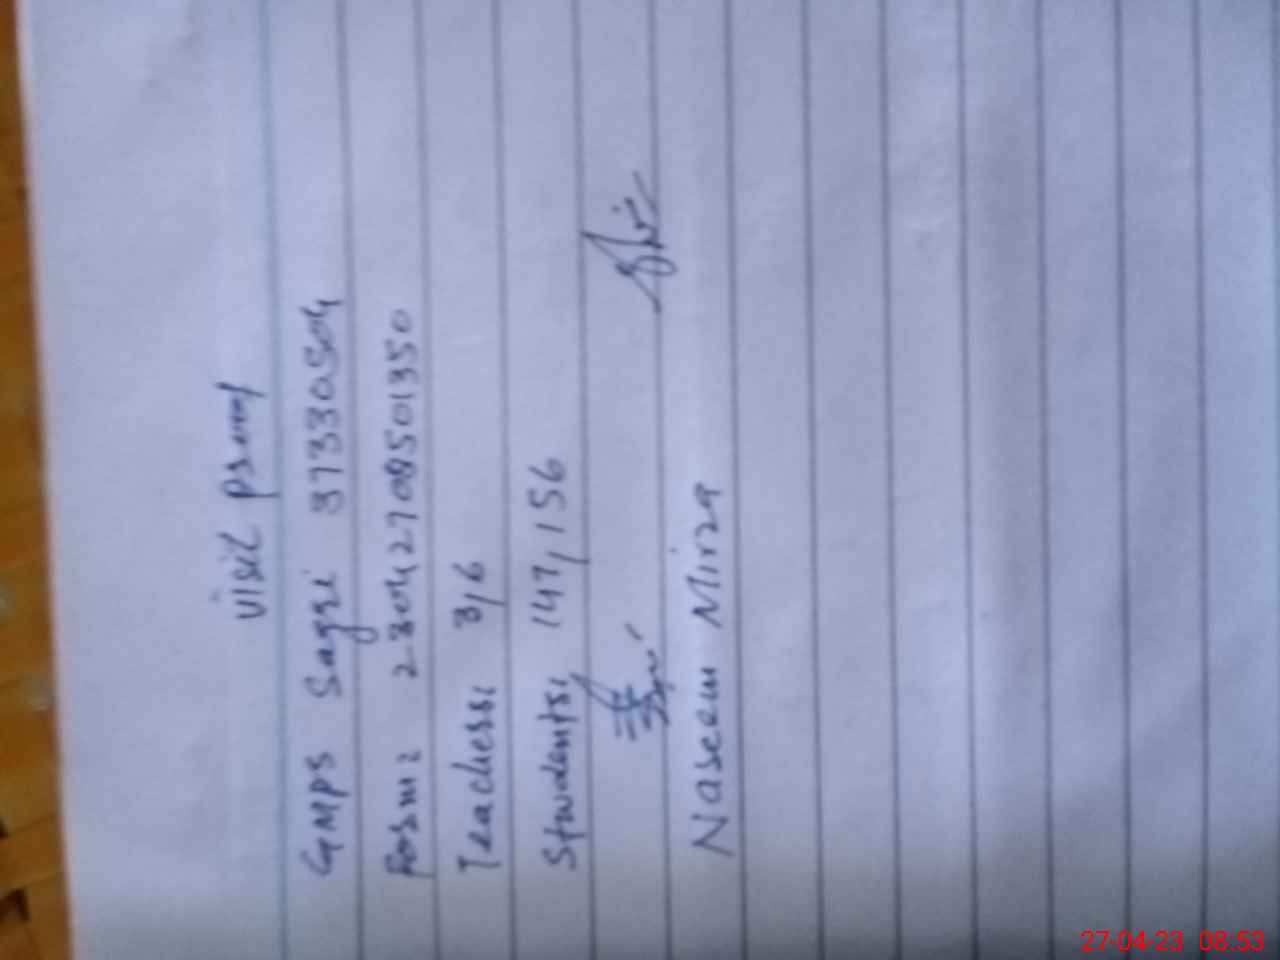 Visit proof
GMPS Saggi 37330504
Form: 23042708501350
Teachers: 3/6
Students: 147/156
Naseem Mirza
27-04-23 08:53